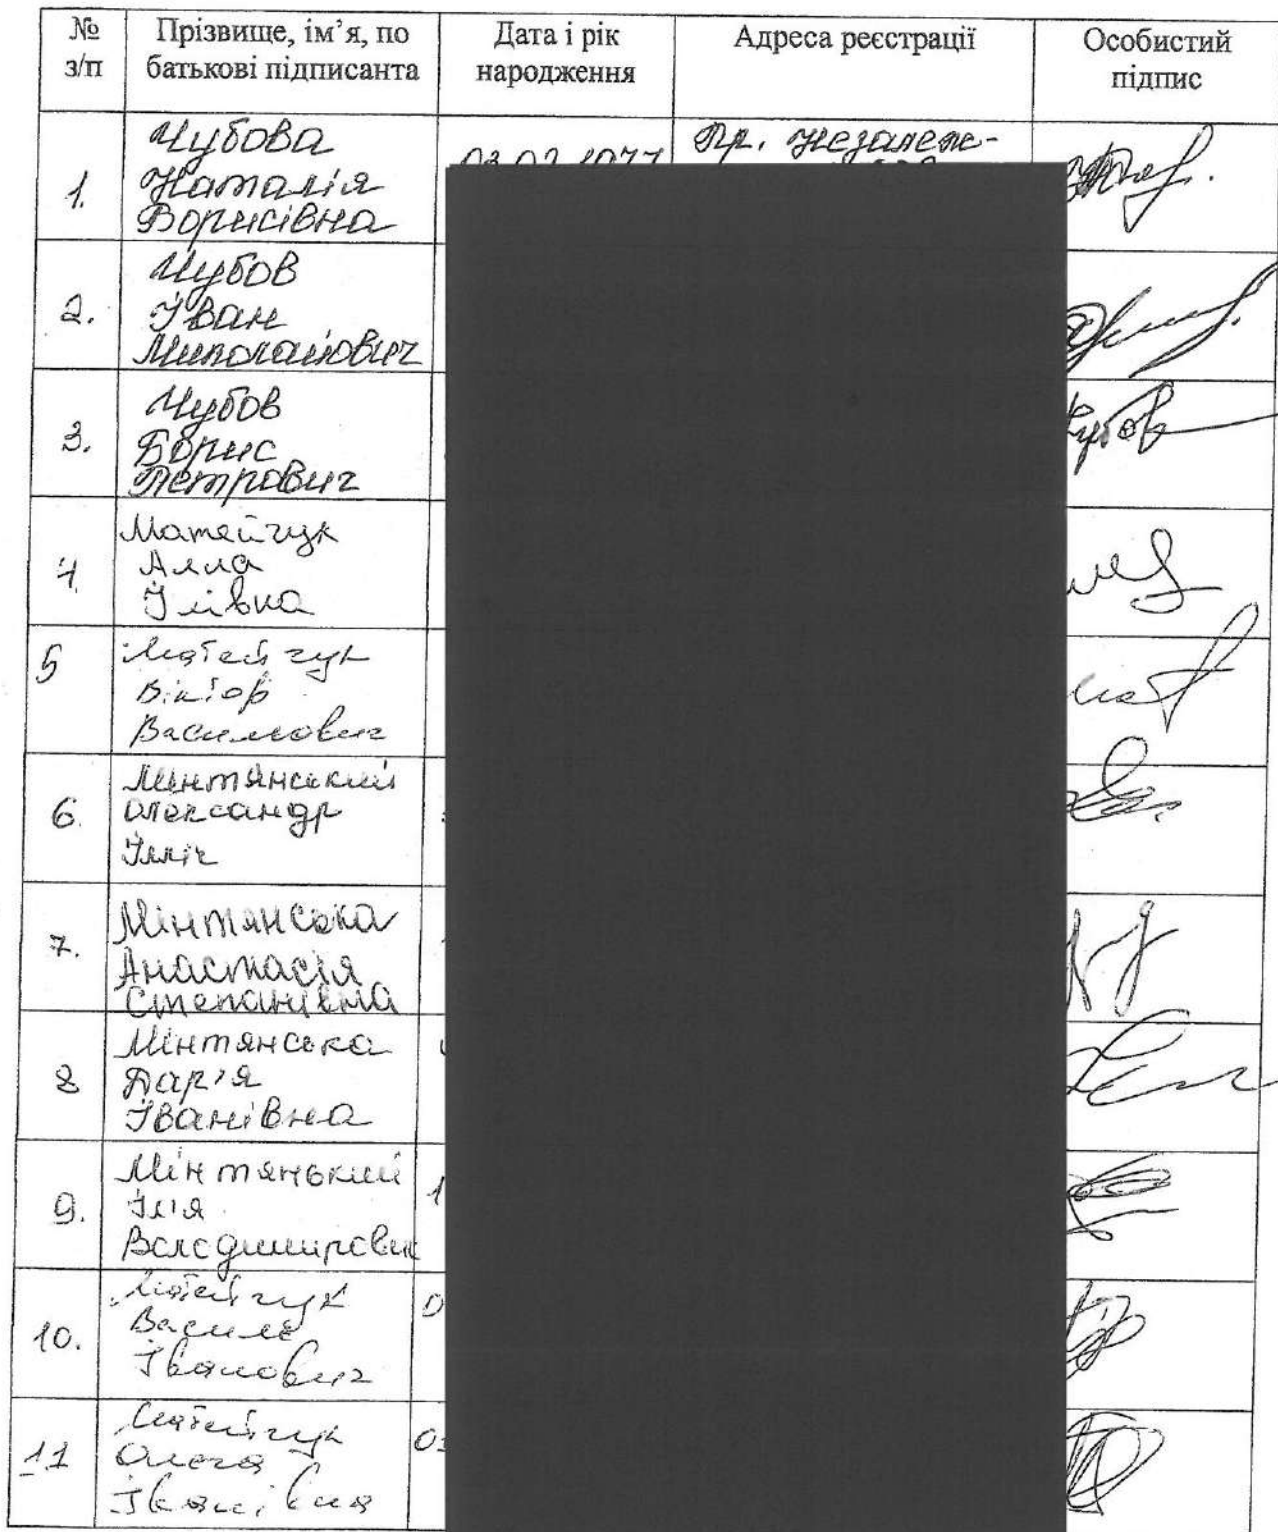 № з/п
Прізвище, ім’я, по батькові підписанта
Дата і рік народження
Адреса реєстрації
Особистий підпис
1.
Чубова
Наталія
Борисівна
Пр. Незалеж-
2.
Чубов
Іван
Миколайович
3.
Чубов
Борис
Петрович
Чубов
4
Матейчук
Алла
Іллівна
5
Матейчук
Віктор
Васильович
6.
Мінтянський
Олександр
Ілліч
7.
Мінтянська
Анастасія
Степанівна
8
Мінтянська
Дар'я
Іванівна
9.
Мінтянський
Ілля
Володимирович
10.
Матейчук
Василь
Іванович
11
Матейчук
Олега
Іванівна